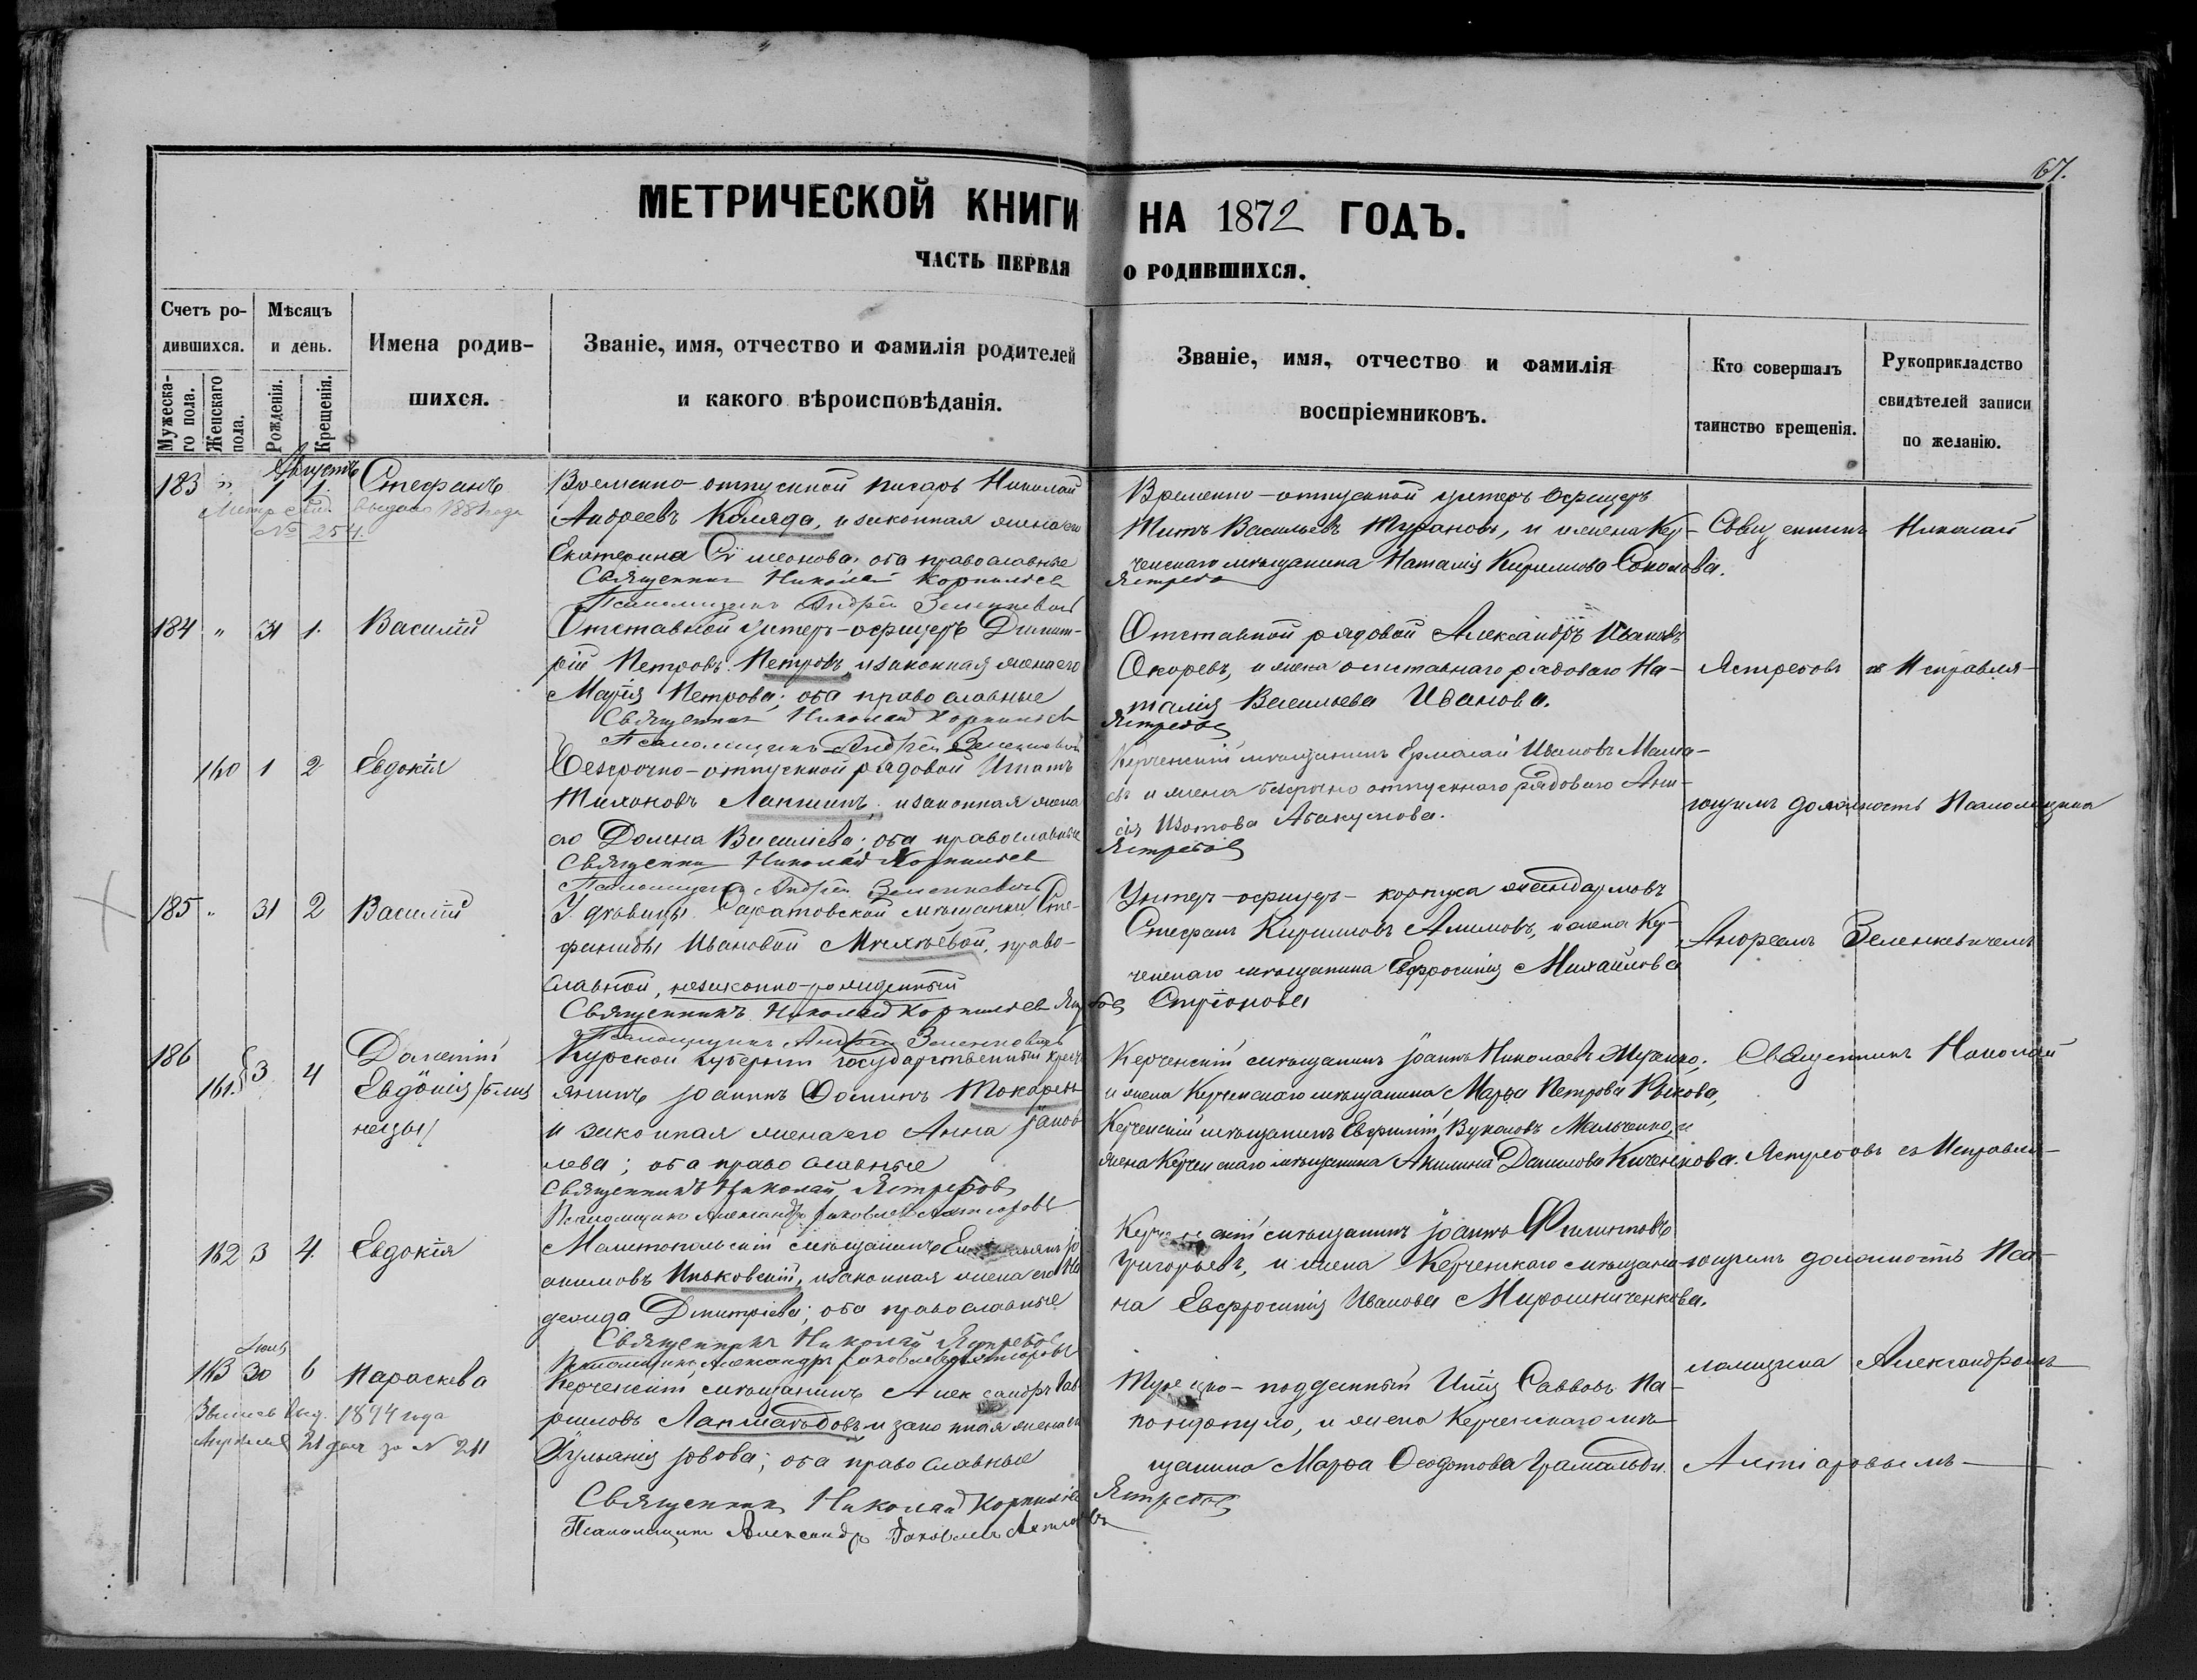 67.
МЕТРИЧЕСКОЙ КНИГИ НА 1872 ГОДЪ.
ЧАСТЬ ПЕРВАЯ О РОДИВШИХСЯ.
Счетъ ро-
дившихся.
Мужеска-
го пола.
Женскаго
пола.
Мѣсяцъ
и день.
Рожденія.
Крещенія.
Имена родив-
шихся.
Званіе, имя, отчество и фамилія родителей
и какого вѣроисповѣданія.
Званіе, имя, отчество и фамилія
воспріемниковъ.
Кто совершалъ
таинство крещенія.
Рукоприкладство
свидѣтелей записи
по желанію.
Августъ
183 " 1 1. Стефанъ
выдано 1881 года
№ 254.
Временно-отпускной писарь Николай
Андреевъ Коляда, и законная жена его
Екатерина Сімеонова, оба православные
Священник Николай Корнильев
Псаломщикъ Андрей Зеленкевичъ
Временно-отпускной унтеръ офицеръ
Титъ Васильевъ Тугановъ, и жена Кер-
ченскаго мѣщанина Наталія Кириллова Соколова.
Ястребов
Священникъ Николай
184 " 31 1. Василій
Отставной унтеръ-офицеръ Димит-
рій Петровъ Петровъ, и законная жена его
Марія Петрова; оба православные
Священник Николай Корнильев
Псаломщикъ Андрей Зеленкевичъ
Отставной рядовой Александръ Ивановъ
Окоревъ, и жена отставнаго рядоваго На-
талія Васильева Иванова.
Ястребов
Ястребовъ съ Исправля-
160 1 2 Евдокія
Безсрочно-отпускной рядовой Игнатъ
Тихоновъ Лакшинъ, и законная жена
его Домна Василіева; оба православные
Священник Николай Корнильев
Псаломщикъ Андрей Зеленкевичъ
Керченскій мѣщанинъ Ермолай Ивановъ
и жена безсрочно отпускнаго рядоваго Ани-
сія Изотова Абакумова.
Ястребов
ющимъ должность Псаломщика
185 " 31 2 Василій
У дѣвицы Саратовской мѣщанки Сте-
фаниды Ивановой Михѣевой, право-
славной, незаконно-рожденный
Священникъ Николай Корнильев Ястребов
Псаломщикъ Андрей Зеленкевичъ
Унтеръ-офицеръ корпуса жандармовъ
Стефанъ Кирилловъ Алимовъ, и жена Кер-
ченскаго мѣщанина Евфросинія Михайлова
Спиріонова
Андреемъ Зеленкевичемъ
186 161. 3 4 Дометій
Евдокія /близ
нецы/
Курской губерніи государственный кресть
янинъ Іоаннъ Ѳоминъ Токарев
и законная жена его Анна Іаков
лева; оба православные
Священникъ Николай Ястребов
Псаломщикъ Александръ Іаковлевъ Алтіаровъ
Керченскій мѣщанинъ Іоаннъ Николаевъ
и жена Керченскаго мѣщанина Марѳа Петрова Рыкова,
Керченскій мѣщанинъ Евфимій Вуколовъ Мальченко, и
жена Керченскаго мѣщанина Акилина Данилова Киченкова.
Священникъ Николай
Ястребовъ съ Исправля-
162 3 4. Евдокія
Мелитопольскій мѣщанинъ
Иньковскій, и законная жена его На
дежда Дмитріева; оба православные
Священникъ Николай Ястребов
Псаломщикъ Александръ Іаковлевъ Алтіаровъ
Керченскій мѣщанинъ Іоаннъ Филиповъ
Григорьевъ, и жена Керченскаго мѣщани-
на Евфросинія Иванова Мирошниченкова.
ющимъ должность Пса-
Іюля
163 30 6 Параскева
1894 года
№ 211
Керченскій мѣщанинъ Александръ Гав-
риловъ и законная жена его
Іуліанія Іовова; оба православные
Священник Николай Корнильев Ястребов
Псаломщик Александръ Іаковлевъ Алтіаровъ
Турецко-подданный Илія Саввовъ Па-
пандопуло, и жена Керченскаго мѣ-
щанина Марѳа Ѳеодотова Грамальди.
ломщика Александромъ
Алтіаровымъ